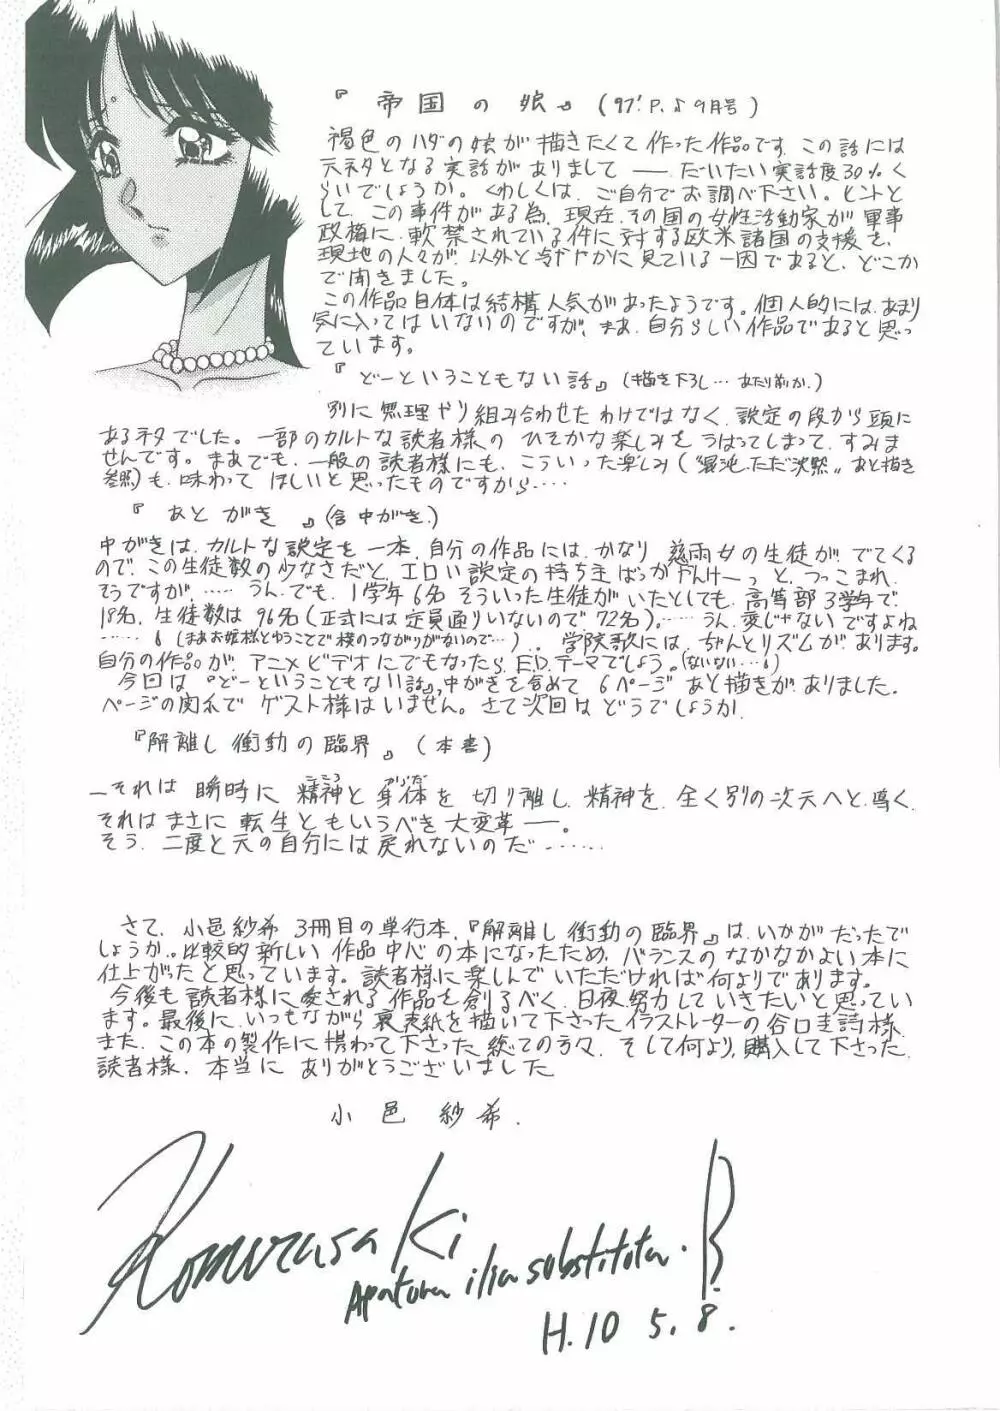 『帝国の娘』(97'. P.♪9月号)
褐色のハダの娘が描きたくて作った作品です。この話には
元ネタとなる実話がありまして──だいたい実話度30%く
らいでしょうか。くわしくは、ご自分でお調べ下さい。ヒントと
して、この事件がある為、現在、その国の女性活動家が軍事
政権に軟禁されている件に対する欧米諸国の支援を、
現地の人々が、以外と冷ややかに見ている一因であると、どこか
で聞きました。
この作品自体は結構人気があったようです。個人的には、あまり
気に入ってはいないのですが、まぁ、自分らしい作品であると思っ
ています。
『どーということもない話』(描き下ろし…あたり前か.)
別に無理やり組み合わせたわけではなく、設定の段から頭に
あるネタでした。一部のカルトな読者様のひそかな楽しみをうばってしまって、すみま
せんです。まあでも、一般の読者様にも、こういった楽しみ(“混沌、ただ沈黙”あと描き
参照)も、味わってほしいと思ったものですから……
『あとがき』(含中がき.)
中がきは、カルトな設定を一本、自分の作品には、かなり慈雨女の生徒がでてくる
ので、この生徒数の少なさだと、エロい設定の持ち主ばっかやんけーっと、つっこまれ
そうですが、……うん、でも、1学年6名そういった生徒がいたとしても、高等部3学年で
18名、生徒数は96名(正式には定員通りいないので72名)。……うん、変じゃないですよね
……(まあお嬢様とゆうことで横のつながりがかいので…)。学院歌には、ちゃんとリズムがあります。
自分の作品が、アニメビデオにでもなったら、E.D.テーマでしょう。(ないない…)
今回は『どーということもない話』、中がきを含めて6ページあと描きがありました。
ページの関係でゲスト様はいません。さて次回はどうでしょうか
『解離し衝動の臨界』(本書)
―それは瞬時に精神と身体を切り離し、精神を、全く別の次元へと導く、
こころ からだ
それはまさに転生ともいうべき大変革──。
そう、二度と元の自分には戻れないのだ……
さて、小邑紗希3冊目の単行本、『解離し衝動の臨界』は、いかがだったで
しょうか。比較的新しい作品中心の本になったため、バランスのなかなかよい本に
仕上がったと思っています。読者様に楽しんでいただければ何よりであります。
今後も読者様に愛される作品を創るべく、日夜努力していきたいと思ってい
ます。最後に、いつもながら裏表紙を描いて下さったイラストレーターの谷口圭詩様、
また、この本の製作に携わって下さった総ての方々、そして何より、購入して下さった
読者様、本当にありがとうございました
小邑紗希.
Komurasaki
Apatura ilia substituta. B.
H.10 5.8.